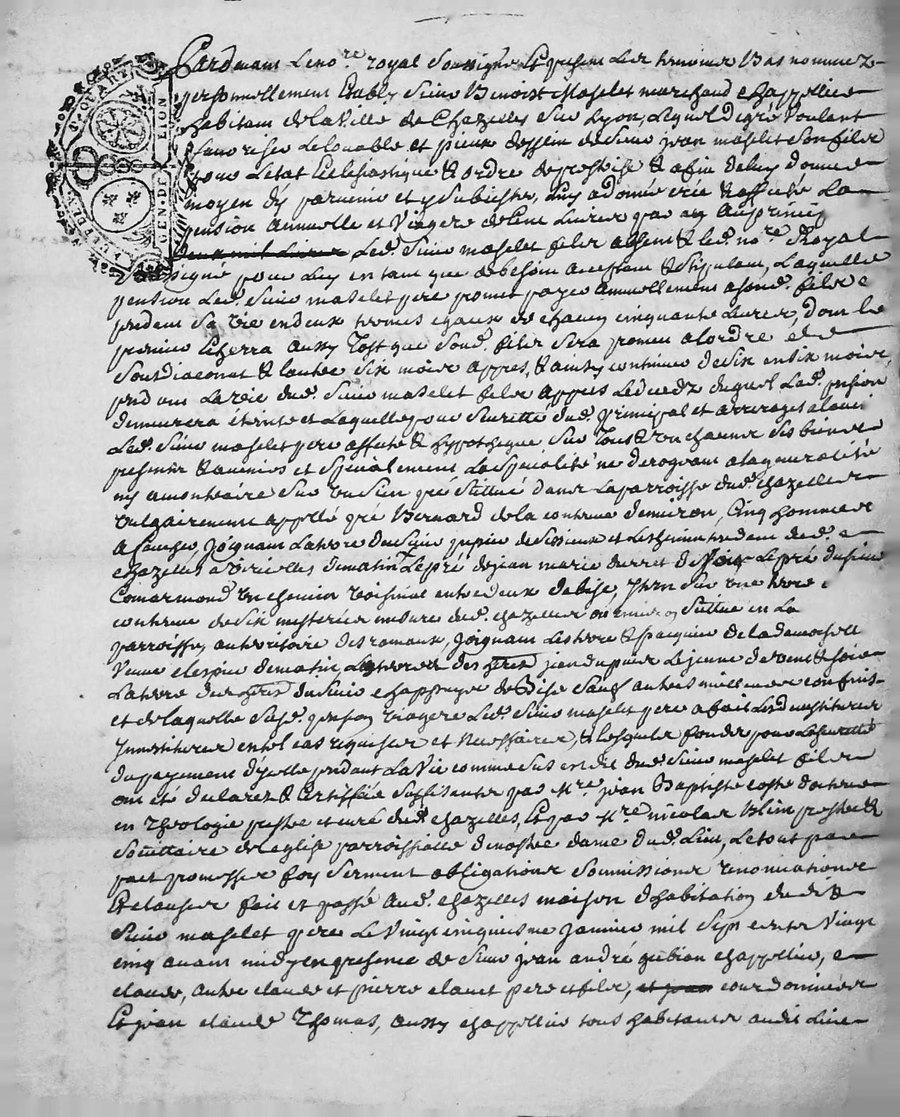 Pardevant Le no.re royal Soussigné Et present Les temoins Bas nommez
personnellement Etably Sieur Benoist Maselet marchand chappellier
habitant de la Ville de Chazelles Sur Lyon, Lequel de gré Voulant
favoriser Le louable et pieux dessein de Sieur jean maselet Son fils
pour L'état Ecclesiastique & ordre de prestrise & afin de luy donner
moyen d'y parvenir et y Subsister, Luy a donné crée & assuré La
pension Annuelle et Viagere de Cent Livres Au princip
Led. Sieur maselet fils absent & led. no.re Royal
Soussigné pour Luy en tant que de besoin acceptant & Stipulant, Laquelle
pension Led. Sieur maselet pere promet payer Annuellement a sond. fils
pendant Sa Vie en deux termes egaux de chacun cinquante Livres, dont le
premier Echerra Aussy Tost que Sond. fils Sera promeu a l'ordre de
Sousdiaconat & l'autre Six mois Apprès, & ainsy continuer de Six en Six mois,
pendant La vie dud. Sieur maselet fils Apprès Le deceds duquel Lad. pension
demeurera éteinte et Laquelle pour Seurette dud. principal et arrerages
Led. Sieur maselet pere assure & hypotheque Sur Tous & Un chacuns Ses biens
presents & avenirs et Specialement La Specialité ne derogeant a la generalité
ny au contraire Sur Un Sien pré Scitué dans La parroisse dud. chazelles
Vulgairement appellé pré Bernard de la contenue d'environ, Cinq hommes
A faucher, Joignant La terre du Sieur et Le chemin tendant dud.
chazelles a Viricelles de matin Le pré de jean marie de Le pré du sieur
Comarmond Un chemin Voisinal entre deux de bise, Item Sur Une terre
contenue de Six mesure dud. chazelles ou environ Scitué en La
parroisse, au territoire des romaux, Joignant Les terre & pacquier de la demoiselle
Veuve de matin La terre des jean dupuier Le jeune de vent & soir
La terre des du Sieur chappuys de Bise Sauf autres meilleurs confins
et de laquelle Susd. pension Viagere Led. Sieur maselet pere a fait Les devestitures
Investitures en tel cas requises et Necessaires, & Lesquels fonds pour La seuretté
du payement d'ycelle pendant La Vie comme Sus est dit dud. Sieur maselet fils
ont été declarez & Certiffiés Suffisants par M.re jean Baptiste coste docteur
en Theologie prestre et curé dud. chazelles, Et par M.re nicolas Blein prestre &
Societtaire de l'eglise parroissialle de nostre dame dud. Lieu, Le tout par
pact promesses foy Serment obligations Soumissions renonciations
Et clauses fait et passé Aud. chazelles maison d'habitation dud.
Sieur maselet pere Le Vingt cinquiesme Janvier mil Sept cents Vingt
cinq avant midy en presence de Sieur jean andré chappellier,
claude, Autre claude et pierre pere et fils, et jean cordonniers
Et jean claude Thomas, Aussy chappellier tous habitants audit Lieu
QUART
LION
GEN. DE